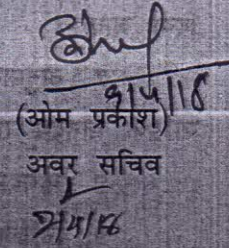 9/4/18
(ओम प्रकाश)
अवर सचिव
9/4/18